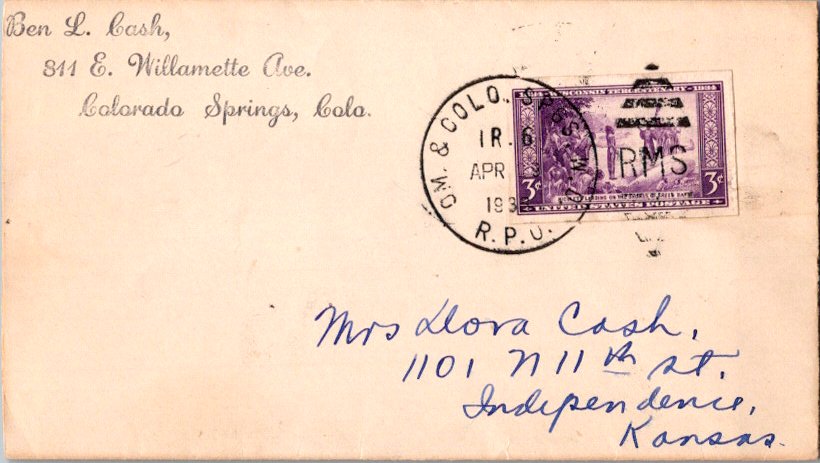 Ben L. Cash,
311 E. Willamette Ave.
Colorado Springs, Colo.
OM. & COLO. SPGS. W.D.
1R.6
APR
193
R.P.O.
RMS
WISCONSIN TERCENTENARY - 1934
3¢ 3¢
LANDING ON THE SHORES OF GREEN BAY
UNITED STATES POSTAGE
Mrs Dora Cash,
1101 N 11th St.
Independence,
Kansas.